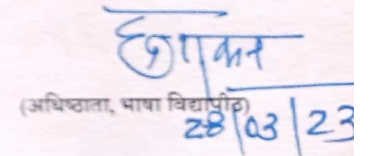 (अधिष्ठाता, भाषा विद्यापीठ)
28/03/23